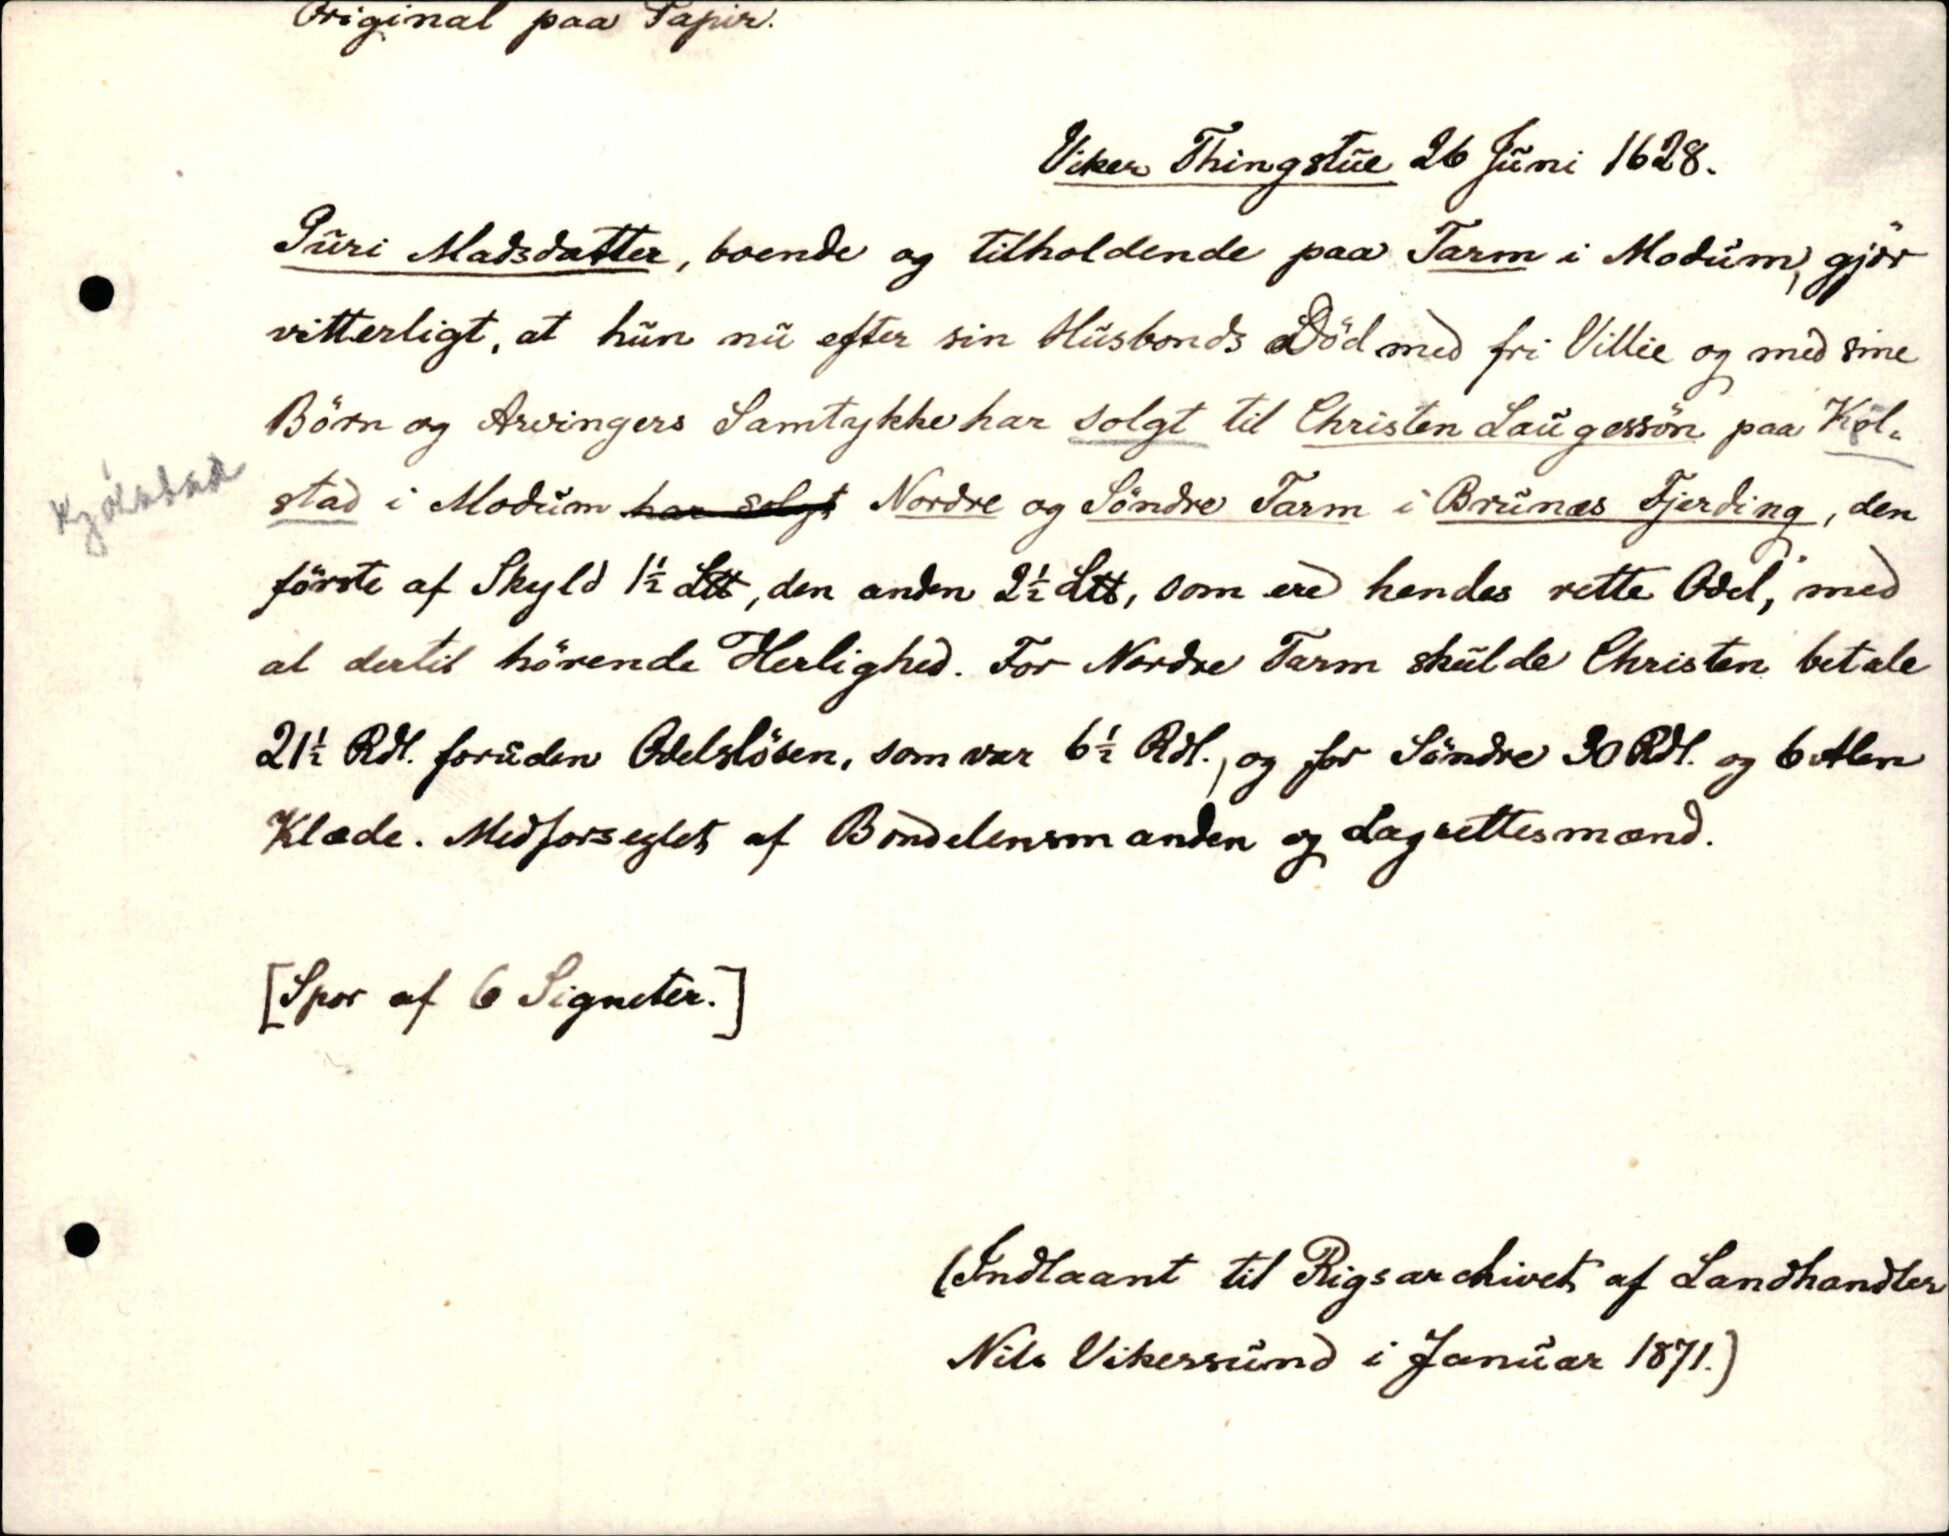 Original paa Papir.
Viker Thingstue 26 Juni 1628.
Puri Madsdatter, boende og tilholdende paa Tarm i Modum, gjör
vitterligt, at hun nu efter sin Husbonds Död med fri Villie og med sine
Börn og Arvingers Samtykke har solgt til Christen Laugessön paa Kol-
Kjölstad
stad i Modum har solgt Nordre og Söndre Tarm i Brunæs Fjerding, den
förste af Skyld 1½ L℔, den anden 2½ L℔, som ere hendes rette Odel, med
al dertil hörende Herlighed. For Nordre Tarm skulde Christen betale
21½ Rdl. foruden Odelslösen, som var 6½ Rdl., og for Söndre 30 Rdl. og 6 Alen
Klæde. Medforseglet af Bondelensmanden og Lagrettesmænd.
[Spor af 6 Signeter.]
(Indlaant til Rigsarchivet af Landhandler
Nils Vikersund i Januar 1871.)